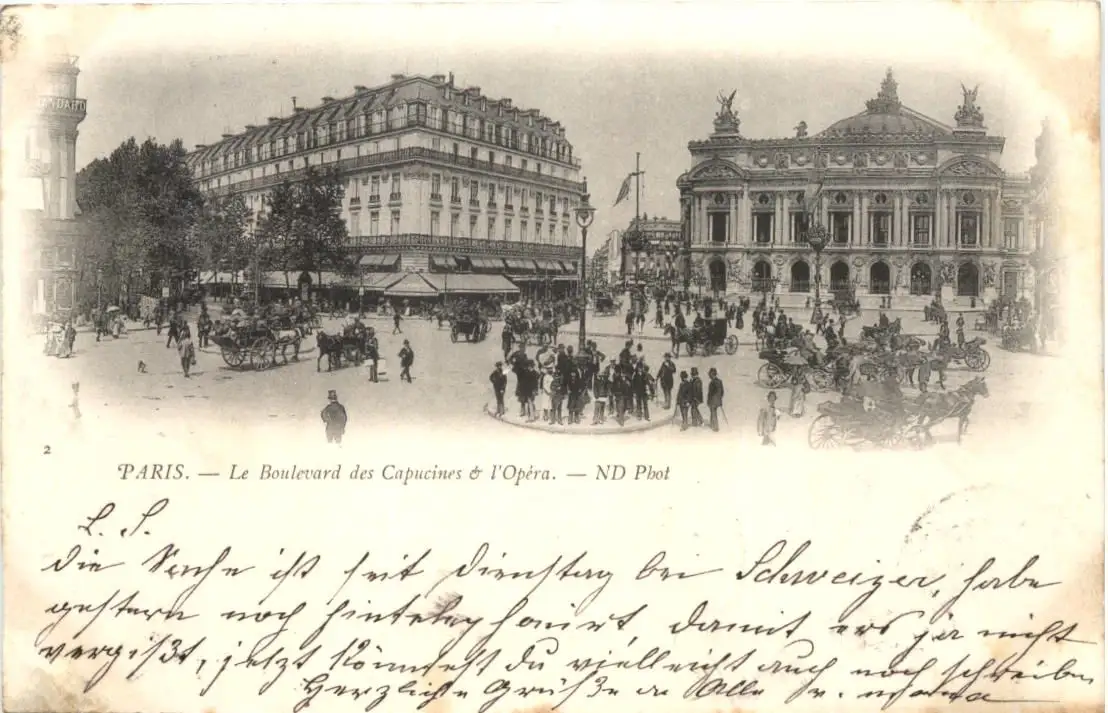 ANDARD
2
PARIS. — Le Boulevard des Capucines & l'Opéra. — ND Phot
L. S.
die Sache ist seit Dienstag bei Schweizer, habe
gestern noch hintelephonirt, damit er's ja nicht
vergißt, jetzt könntest Du vielleicht auch noch schreiben
Herzliche Grüße an Alle v. mama